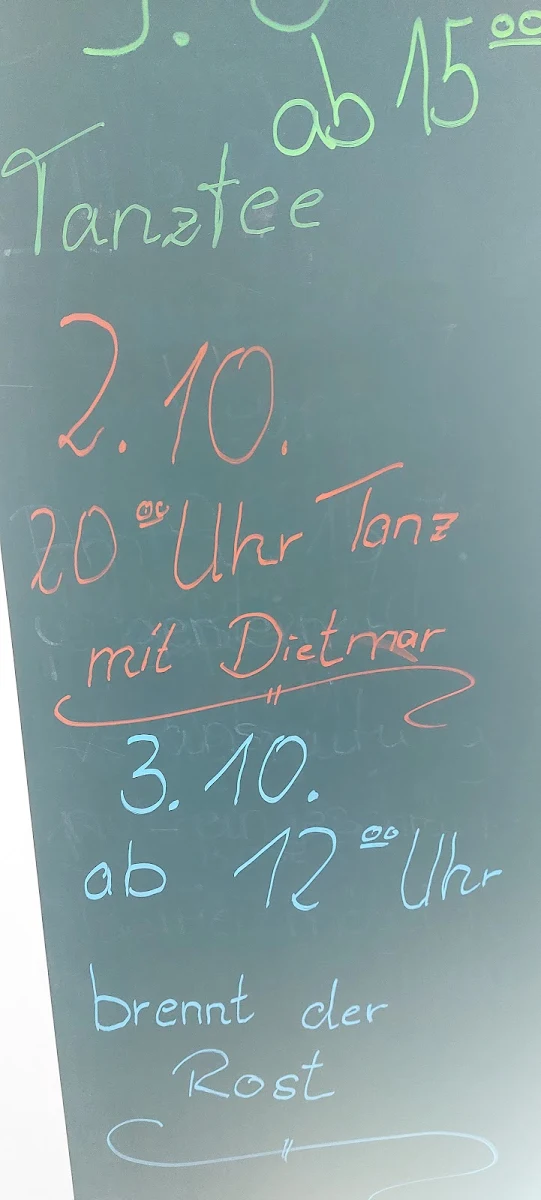 ab 15⁰⁰
Tanztee
2.10.
20⁰⁰ Uhr Tanz
mit Dietmar
3.10.
ab 12⁰⁰ Uhr
brennt der
Rost